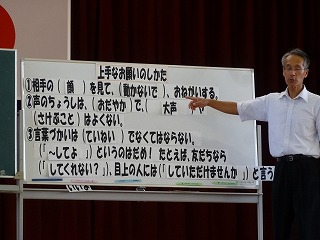 上手なお願いのしかた
①相手の（ 顔 ）を見て、（動かないで ）、おねがいする。
②声のちょうしは、（おだやか ）で、（ 大声
（さけぶこと ）はよくない。
③言葉づかいは（ていねい ）でなくてはならない。
（「 〜してよ 」）というのはだめ！ たとえば、友だちなら
（「してくれない？」）、目上の人には（「していただけませんか 」）と言う